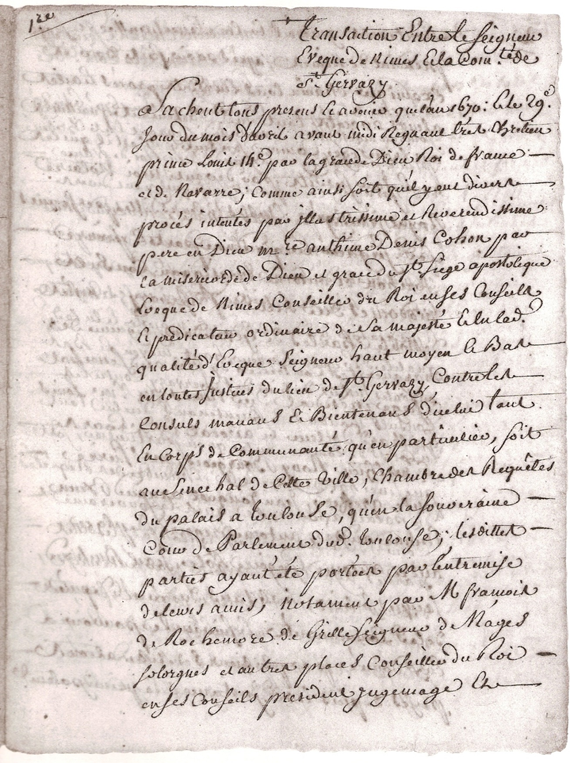 1.re
transaction Entre le seigneur
Eveque de nimes Et la Com.té de
S.t Gervazy
Sachent tons presens et avenir que l'an 1670: Et le 29.e
Jour du mois davril avant midi Regnant tres Chretien
prince Louis 14.e par la grace de Dieu Roi de france
et d. Navarre; Comme ainsi soit qu'il y ont divers
procés intentés par jllustrissime et Reverendissime
pere en Dieu m.re anthime Denis Cohon par
La misericorde de Dieu et grace du s.t Siege apostolique
Eveque de Nimes Conseiller du Roi en ses Conseils
Et predicateur ordinaire de Sa majesté Et en lad.
qualité d'Eveque Seigneur haut moyen Et Bas
en toutes Justices du lieu de S.t Gervazy, Contre les
Consuls manans Et Bientenans dicelui tant
En Corps de Communauté qu'en particulier, soit
au Senechal de Cette Ville, Chambre des Requêtes
du palais a toulouse qu'en la souveraine
Cour de Parlement dud. toulouse; Lesdittes
parties ayant été portées par l'entremise
de leurs amis, notament par M francois
de Rochemore de Grille Seigneur de Nages
solorgues et autres places Conseiller du Roi
en ses Conseils president jugemage Et